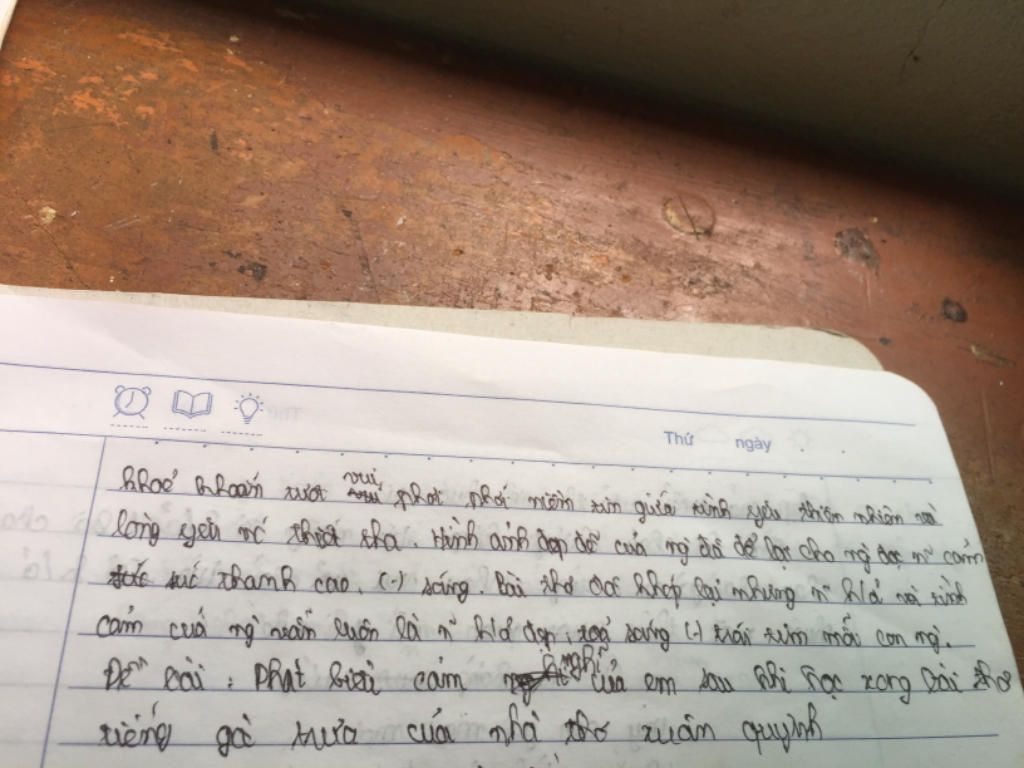 Thứ ngày
khoẻ khoắn tươi vui phơi phới niềm tin giữa tình yêu thiên nhiên và
lòng yêu nc thiết tha. Hình ảnh đẹp đẽ của ng đã để lại cho ng đọc n~ cảm
xúc thanh cao, (-) sáng. Bài thơ đã khép lại nhưng n~ h/ả và tình
cảm của ng vẫn luôn là n~ h/ả đẹp, toả sáng (-) trái tim mỗi con ng.
Đề bài: Phát biểu cảm nghĩ của em sau khi học xong bài thơ
tiếng gà trưa của nhà thơ xuân quỳnh